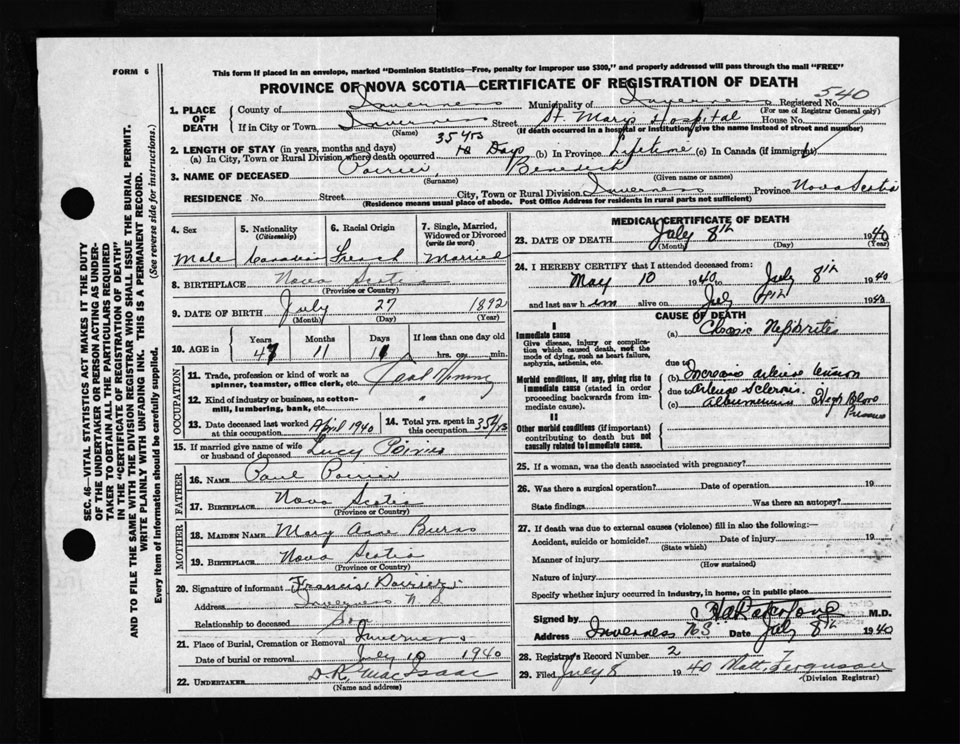 FORM 6
This form if placed in an envelope, marked "Dominion Statistics—Free, penalty for improper use $300," and properly addressed will pass through the mail "FREE"
PROVINCE OF NOVA SCOTIA—CERTIFICATE OF REGISTRATION OF DEATH
540
1. PLACE OF DEATH County of Inverness Municipality of Inverness Registered No.
(For use of Registrar General only)
If in City or Town Inverness Street St. Marys Hospital House No.
(Name) (If death occurred in a hospital or institution, give the name instead of street and number)
2. LENGTH OF STAY (in years, months and days) 35 yrs
(a) In City, Town or Rural Division where death occurred Days (b) In Province Lifetime (c) In Canada (if immigrant)
3. NAME OF DECEASED Poirier, Benedict
(Surname) (Given name or names)
RESIDENCE No. Street City, Town or Rural Division Inverness Province Nova Scotia
(Residence means usual place of abode. Post Office Address for residents in rural parts not sufficient)
4. Sex 5. Nationality (Citizenship) 6. Racial Origin 7. Single, Married, Widowed or Divorced (write the word)
Male Canadian French Married
8. BIRTHPLACE Nova Scotia
(Province or Country)
9. DATE OF BIRTH July 27 1892
(Month) (Day) (Year)
10. AGE in Years Months Days If less than one day old
47 11 11 hrs. or min.
OCCUPATION
11. Trade, profession or kind of work as spinner, teamster, office clerk, etc. Coal Mining
12. Kind of industry or business, as cotton-mill, lumbering, bank, etc. "
13. Date deceased last worked at this occupation April 1940 14. Total yrs. spent in this occupation 35 yrs
15. If married give name of wife or husband of deceased Lucy Poirier
FATHER
16. NAME Paul Poirier
17. BIRTHPLACE Nova Scotia
(Province or Country)
MOTHER
18. MAIDEN NAME Mary Ann Burns
19. BIRTHPLACE Nova Scotia
(Province or Country)
20. Signature of informant Francis Poirier
Address Inverness N S
Relationship to deceased Son
21. Place of Burial, Cremation or Removal Inverness
Date of burial or removal July 10 1940
22. UNDERTAKER D.R. MacIsaac
(Name and address)
MEDICAL CERTIFICATE OF DEATH
23. DATE OF DEATH July 8th 1940
(Month) (Day) (Year)
24. I HEREBY CERTIFY that I attended deceased from:
May 10 1940 to July 8th 1940
and last saw him alive on July 1940
CAUSE OF DEATH
I
Immediate cause
Give disease, injury or complication which caused death, not the mode of dying, such as heart failure, asphyxia, asthenia, etc.
(a) Chronic Nephritis
due to
Morbid conditions, if any, giving rise to immediate cause (stated in order proceeding backwards from immediate cause).
(b)
due to
(c) High Blood Pressure
II
Other morbid conditions (if important) contributing to death but not causally related to immediate cause.
25. If a woman, was the death associated with pregnancy?
26. Was there a surgical operation? Date of operation 19
State findings Was there an autopsy?
27. If death was due to external causes (violence) fill in also the following:—
Accident, suicide or homicide? Date of injury 19
(State which)
Manner of injury
(How sustained)
Nature of injury
Specify whether injury occurred in industry, in home, or in public place
Signed by M.D.
Address Inverness NS Date July 8th 1940
28. Registrar's Record Number 2
29. Filed July 8 1940 Matt. Ferguson
(Division Registrar)
SEC. 46—VITAL STATISTICS ACT MAKES IT THE DUTY
OF THE UNDERTAKER OR PERSON ACTING AS UNDERTAKER TO OBTAIN ALL THE PARTICULARS REQUIRED
IN THE "CERTIFICATE OF REGISTRATION OF DEATH"
AND TO FILE THE SAME WITH THE DIVISION REGISTRAR WHO SHALL ISSUE THE BURIAL PERMIT.
WRITE PLAINLY WITH UNFADING INK. THIS IS A PERMANENT RECORD.
Every item of information should be carefully supplied. (See reverse side for instructions.)